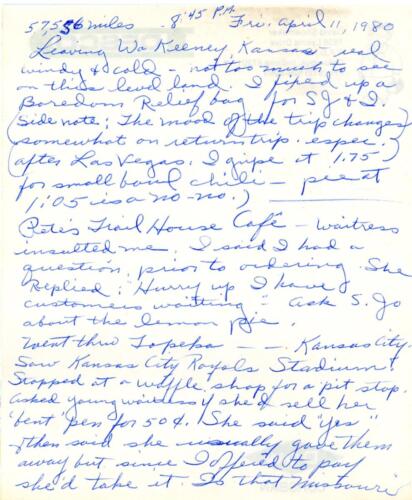 57556 miles - 8:45 P.M. Fri. April 11, 1980
Leaving Wa Keeney, Kansas - real
windy & cold - not too much to see
on this level land. I fixed up a
Boredom Relief bag for SJ & I.
(Side note: The mood of the trip changes
somewhat on return trip. espec.
after Las Vegas. I gripe at 1.75
for small bowl chili - pee at
1:05 is a no-no.)
Pete's Trail House Café - Waitress
insulted me. I said I had a
question, prior to ordering. She
Replied: Hurry up I have
customers waiting - Ask S. Jo
about the lemon pie.
Went thru Topeka - - Kansas City.
Saw Kansas City Royals Stadium!
Stopped at a waffle shop for a pit stop.
Asked young waitress if she'd sell her
"bent" pen for 50¢. She said "Yes"
& then said she usually gave them
away but since I offered to pay
she'd take it. Is that Missouri